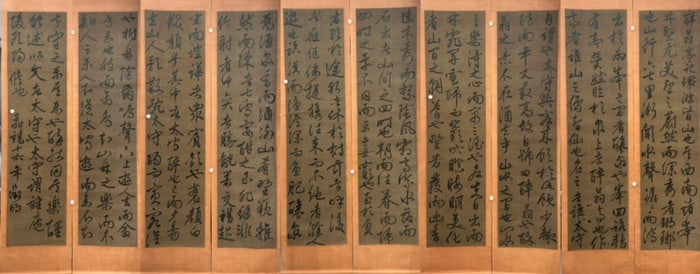 醉翁亭記環滁皆山也其西南諸峯
林壑尤美望之蔚然而深秀者瑯琊
也山行六七里漸聞水聲潺潺而瀉
出於兩峯之間者釀泉也峯回路轉
有亭翼然臨於泉上者醉翁亭也作
亭者誰山之僧智仙也名之者誰太守
自謂也太守與客來飲於此飲少輒
醉而年又最高故自號曰醉翁也醉
翁之意不在酒在乎山水之間也山水
之樂得之心而寓之酒也若夫日出而
林霏開雲歸而巖穴暝晦明變化
者山間之朝暮也野芳發而幽香
佳木秀而繁陰風霜高潔水落而
石出者山間之四時也朝而往暮而歸
四時之景不同而樂亦無窮也至於負
者歌於途行者休於樹前者呼後
者應傴僂提攜往來而不絕者滁人
遊也臨溪而漁溪深而魚肥釀泉
為酒泉香而酒冽山肴野蔌雜
然而前陳者太守宴也宴酣之樂非絲非
竹射者中奕者勝觥籌交錯起
坐而諠譁者衆賓歡也蒼顏白
髮頹乎其中者太守醉也已而夕陽
在山人影散亂太守歸而賓客從
也樹林陰翳鳴聲上下遊人去而禽
鳥樂也然而禽鳥知山林之樂而不
知人之樂人知從太守遊而樂不知
太守之樂其樂也醉能同其樂醒
能述以文者太守也太守謂誰廬
陵歐陽脩也 嘉靖六年